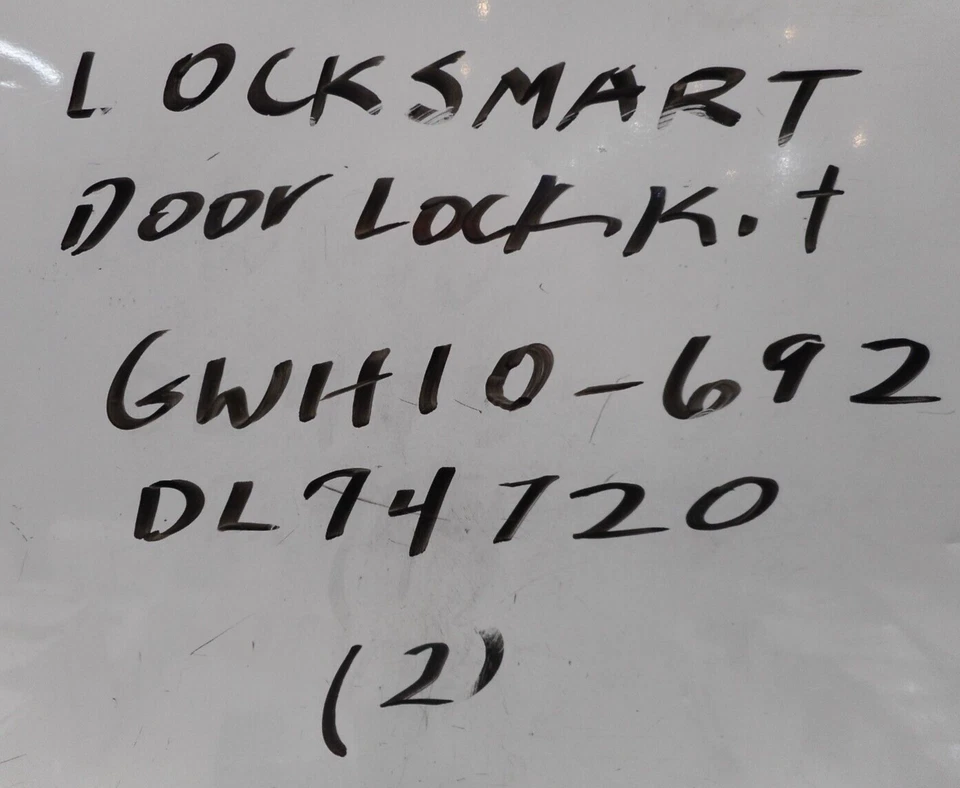 LOCKSMART
Door Lock Kit
GWH10-692
DL74720
(2)